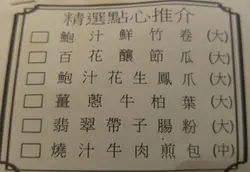 精選點心推介
鮑汁鮮竹卷(大)
百花釀節瓜(大)
鮑汁花生鳳爪(大)
薑蔥牛柏葉(大)
翡翠帶子腸粉(大)
燒汁牛肉煎包(中)